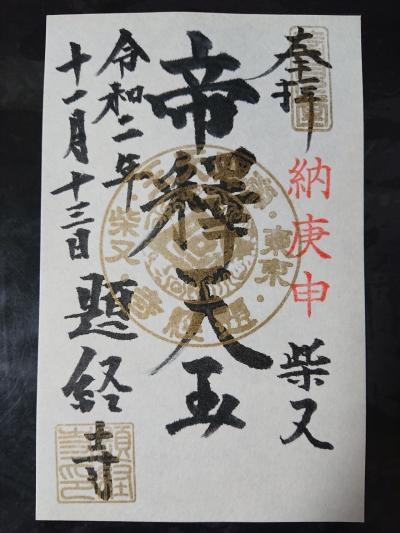 奉拝
納庚申
柴又
帝釈天王
令和二年
十一月十三日
題経寺
東京
柴又